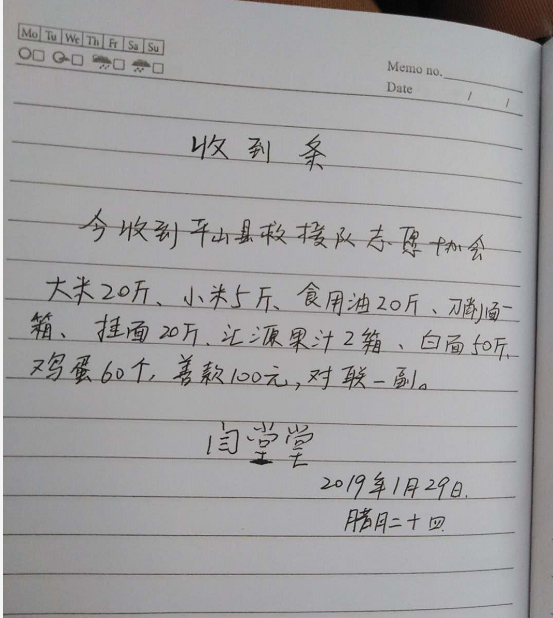 Mo Tu We Th Fr Sa Su
Memo no.
Date / /
收到条
今收到平山县救援队志愿协会
大米20斤、小米5斤、食用油20斤、刀削面一
箱、挂面20斤、汇源果汁2箱、白面50斤、
鸡蛋60个,善款100元,对联一副。
闫堂堂
2019年1月29日.
腊月二十四